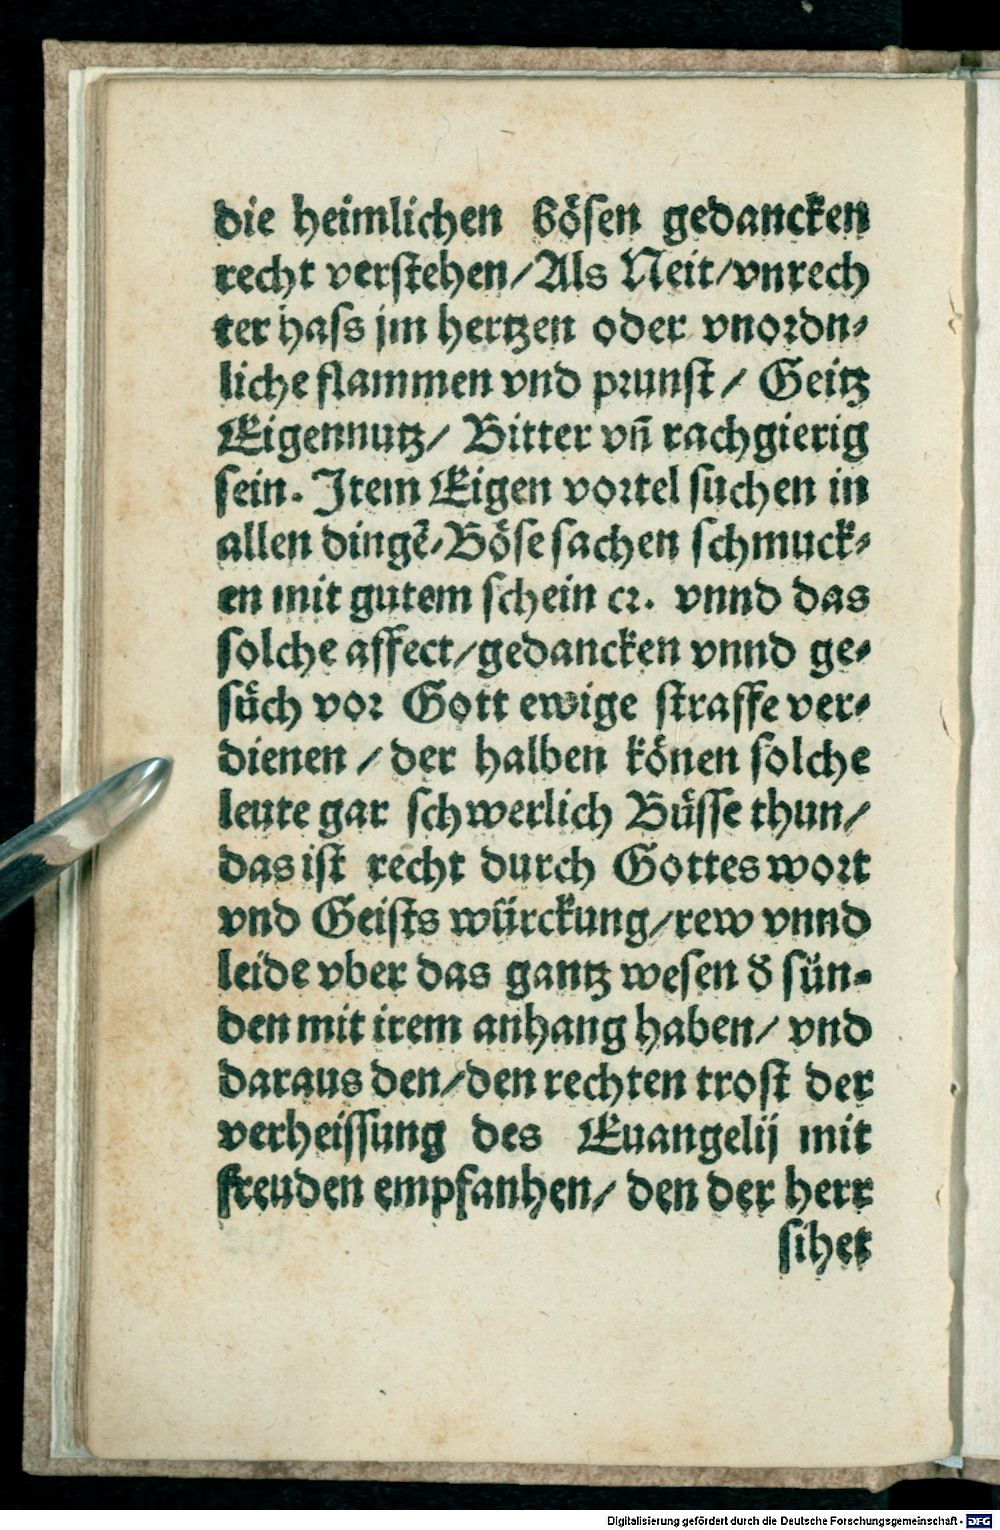 die heimlichen bösen gedancken
recht verstehen/Als Neit/vnrech
ter hass jm hertzen oder vnordn⸗
liche flammen vnd prunst/ Geitz
Eigennutz/ Bitter vñ rachgierig
sein. Jtem Eigen vortel suchen in
allen dingẽ/Böse sachen schmuck⸗
en mit gutem schein ꝛc. vnnd das
solche affect/gedancken vnnd ge⸗
sůch vor Gott ewige straffe ver⸗
dienen/der halben könen solche
leute gar schwerlich Bůsse thun/
das ist recht durch Gottes wort
vnd Geists würckung/rew vnnd
leide vber das gantz wesen d̕ sün⸗
den mit irem anhang haben/ vnd
daraus den/den rechten trost der
verheissung des Euangelij mit
freuden empfanhen/ den der herr
sihet
Digitalisierung gefördert durch die Deutsche Forschungsgemeinschaft - DFG